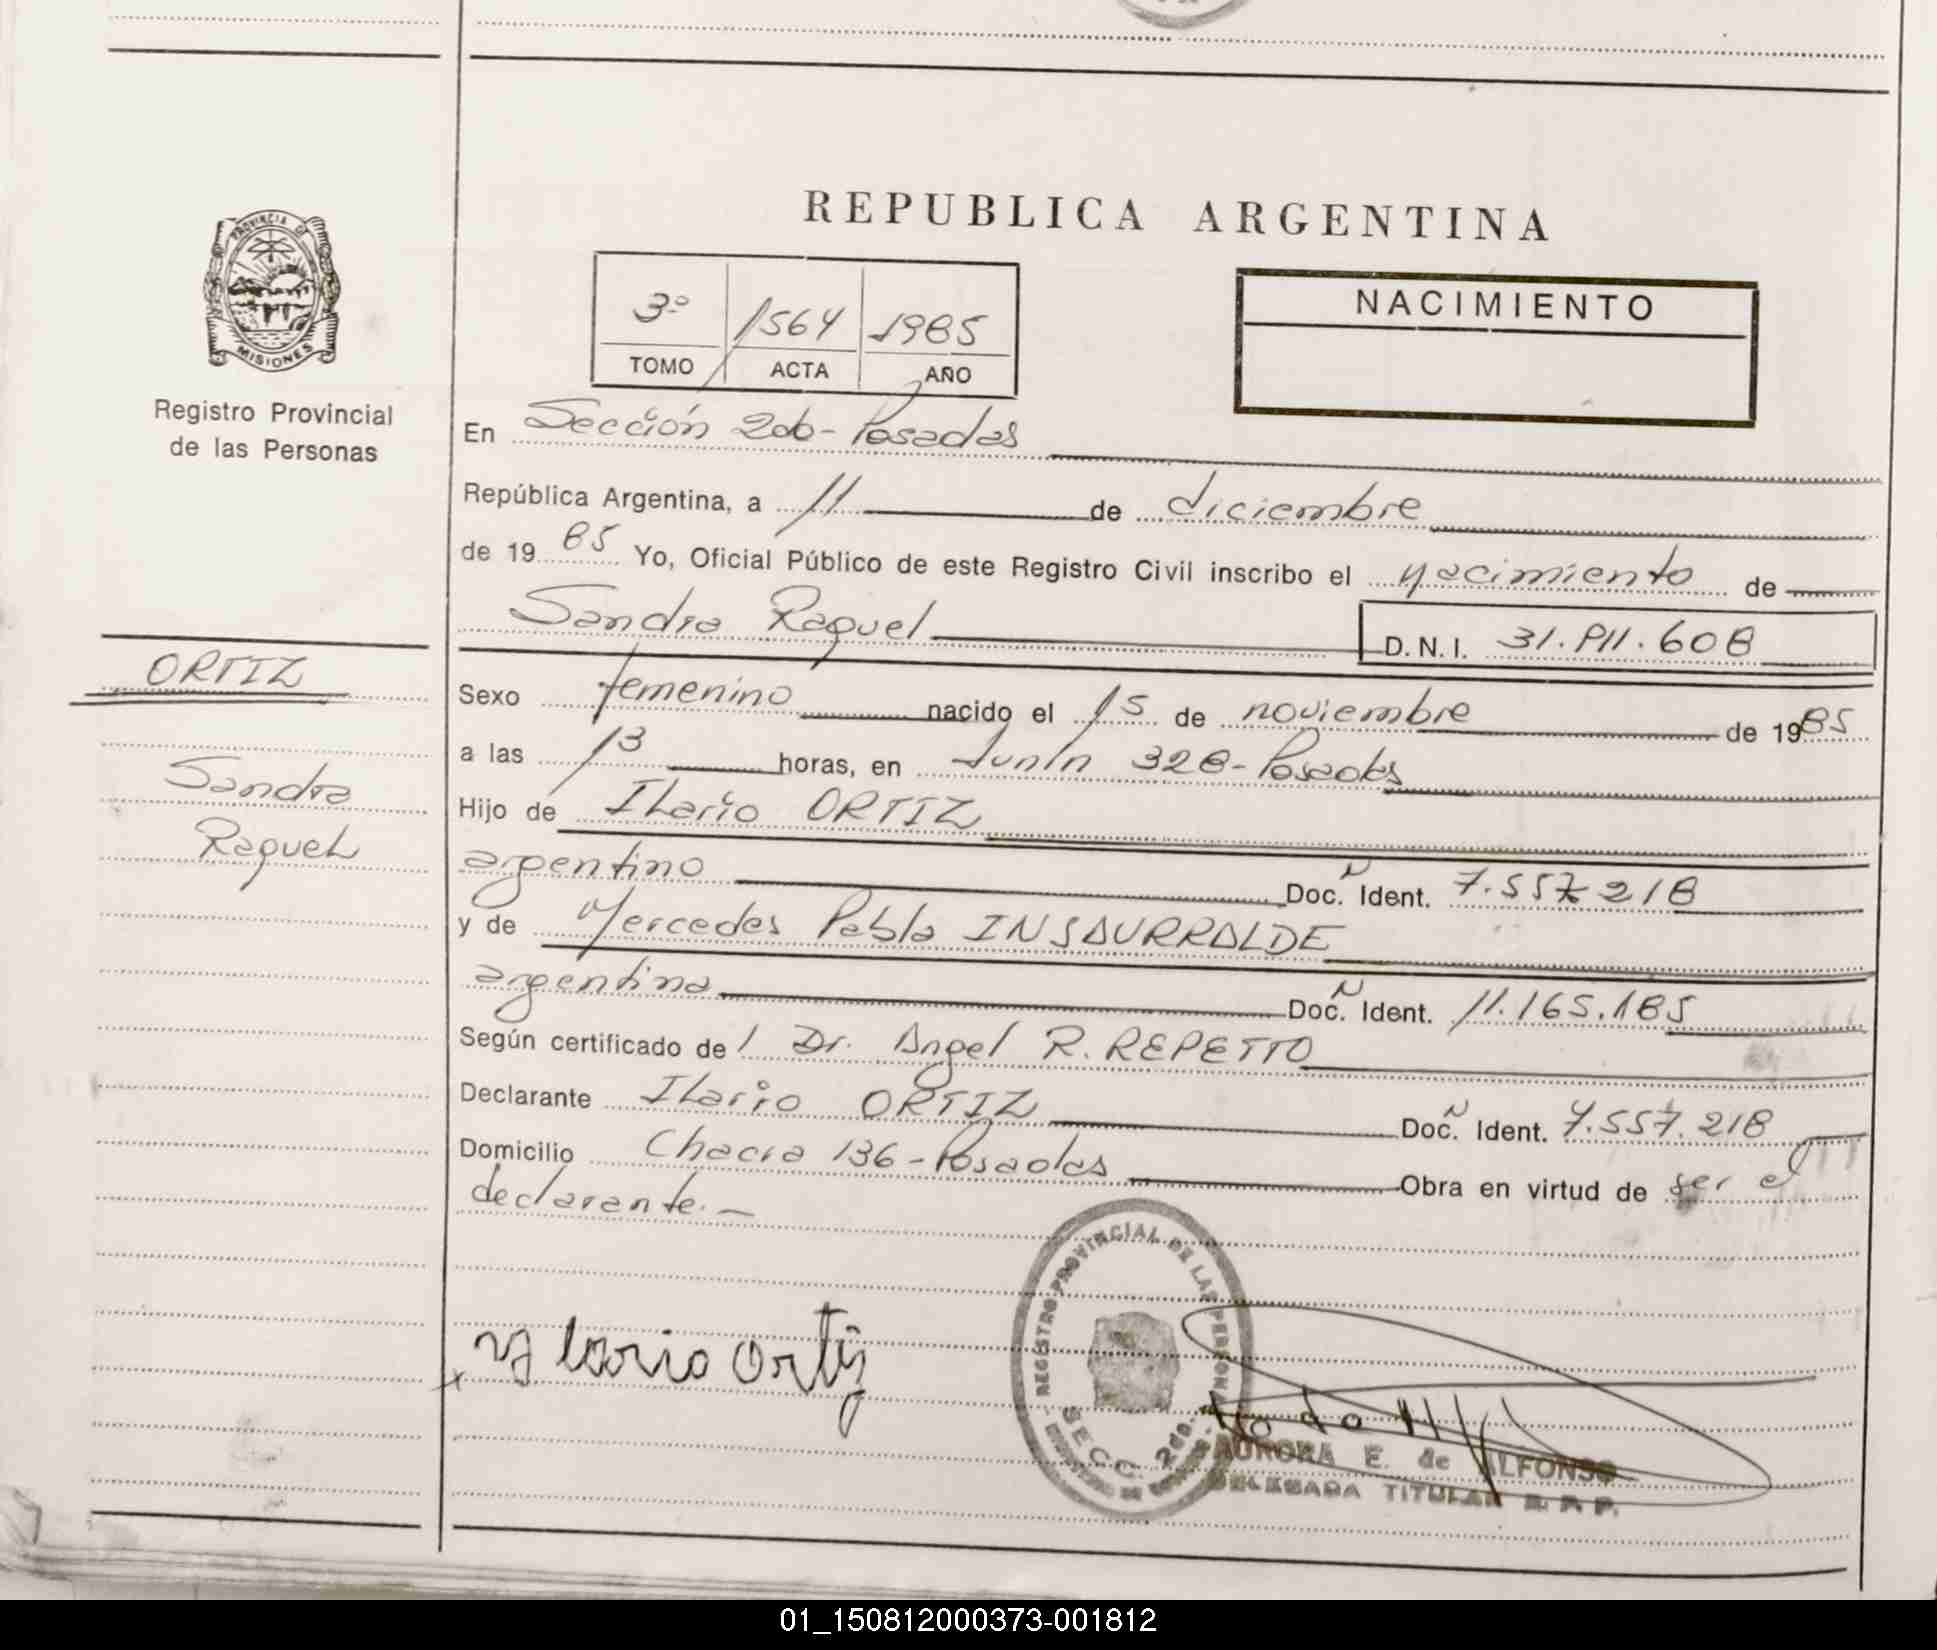 PROVINCIA DE
MISIONES
Registro Provincial
de las Personas
ORTIZ
Sandra
Raquel
REPUBLICA ARGENTINA
3º 1564 1985
TOMO ACTA AÑO
NACIMIENTO
En Sección 2da - Posadas
República Argentina, a 11 de diciembre
de 1985 Yo, Oficial Público de este Registro Civil inscribo el nacimiento de
Sandra Raquel D.N.I. 31.911.608
Sexo femenino nacido el 15 de noviembre de 1985
a las 13 horas, en Junín 328 - Posadas
Hijo de Ilario ORTIZ
argentino Doc. Ident. 7.557.218
y de Mercedes Pabla INSAURRALDE
argentina Doc. Ident. 11.165.185
Según certificado de l Dr. Angel R. REPETTO
Declarante Ilario ORTIZ Doc. Ident. 7.557.218
Domicilio Chacra 136 - Posadas Obra en virtud de ser el
declarante.-
REGISTRO PROVINCIAL DE LAS PERSONAS
SECC. 2da.
Ylario Ortiz
AURORA E. de ALFONSO
DELEGADA TITULAR R. P. P.
01_150812000373-001812